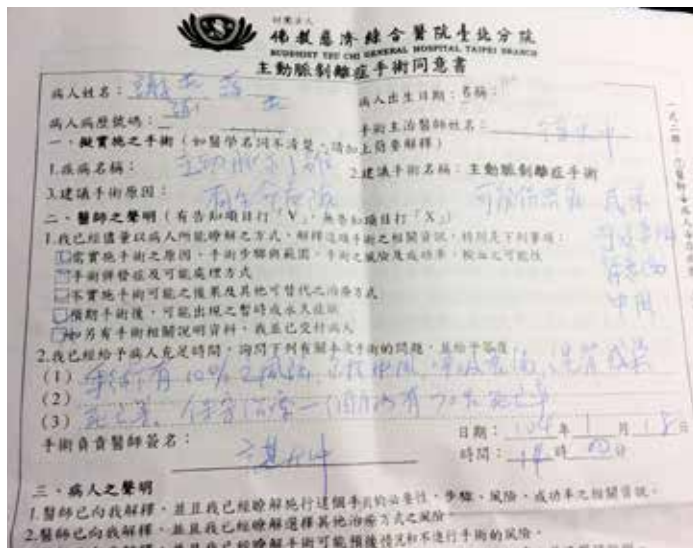 財團法人
佛教慈濟綜合醫院臺北分院
BUDDHIST TZU CHI GENERAL HOSPITAL, TAIPEI BRANCH
主動脈剝離症手術同意書
病人姓名：
病人出生日期：
病人病歷號碼：
手術主治醫師姓名：
一、擬實施之手術（如醫學名詞不清楚，請加上簡要解釋）
1.疾病名稱：主動脈剝離 2.建議手術名稱：主動脈剝離症手術
3.建議手術原因：有生命危險
二、醫師之聲明（有告知項目打「V」，無告知項目打「X」）
1.我已經儘量以病人所能瞭解之方式，解釋這項手術之相關資訊，特別是下列事項：
需實施手術之原因、手術步驟與範圍、手術之風險及成功率、輸血之可能性
手術併發症及可能處理方式
不實施手術可能之後果及其他可替代之治療方式
預期手術後，可能出現之暫時或永久症狀
如另有手術相關說明資料，我並已交付病人
中風
2.我已經給予病人充足時間，詢問下列有關本次手術的問題，並給予答覆：
(1) 手術有10%之風險，包括中風、 感染
(2) 死亡等。保守治療一個月內有70%死亡率
(3)
手術負責醫師簽名：
日期：104年1月18日
時間： 時 分
三、病人之聲明
1.醫師已向我解釋，並且我已經瞭解施行這個手術的必要性、步驟、風險、成功率之相關資訊。
2.醫師已向我解釋，並且我已經瞭解選擇其他治療方式之風險。
並且我已經瞭解手術可能預後情況和不進行手術的風險。